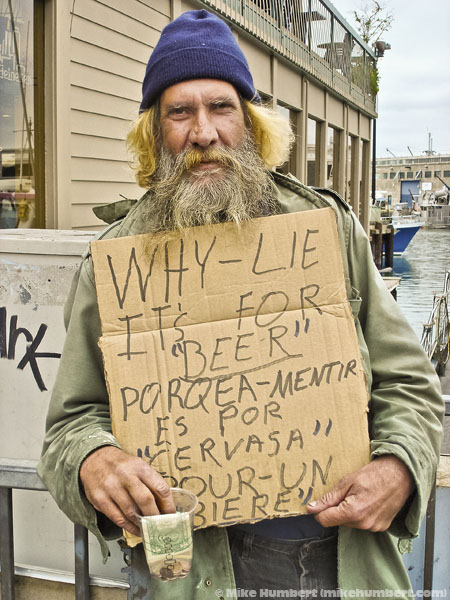 WHY-LIE
IT'S FOR
"BEER"
PORQEA-MENTIR
ES POR
"CERVASA"
POUR-UN
"BIERE"
© Mike Humbert (mikehumbert.com)